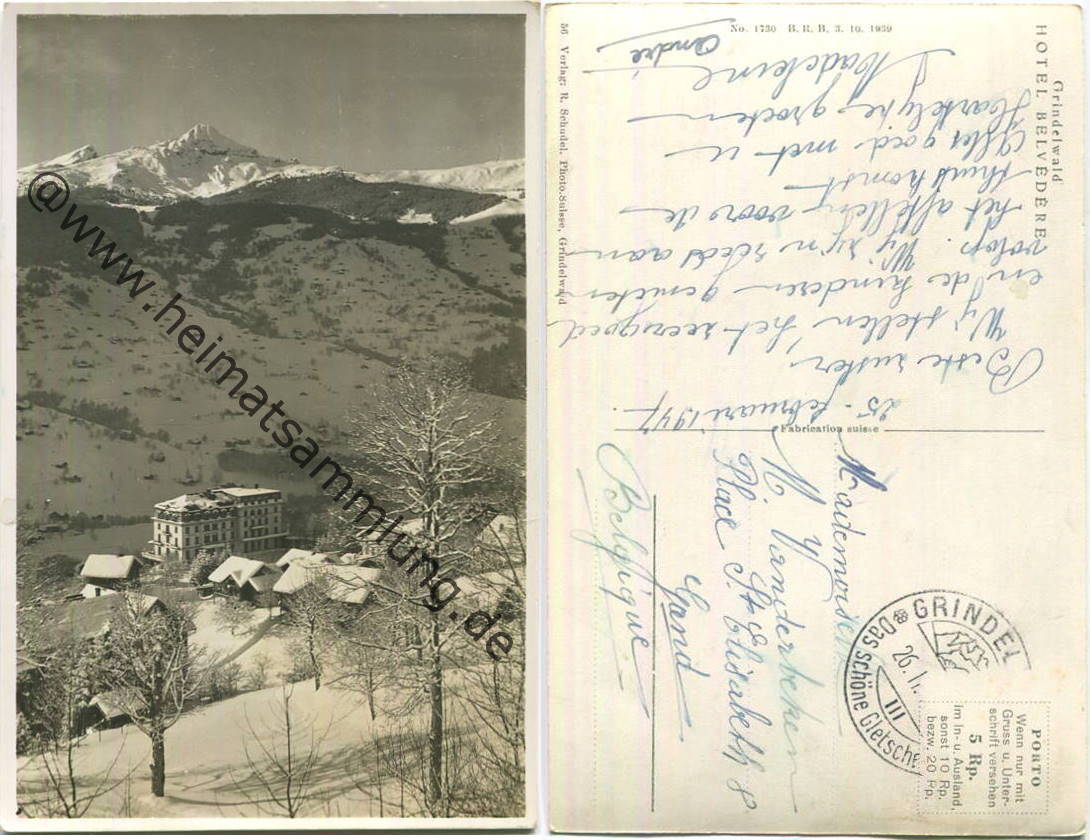 @www.heimatsammlung.de
Grindelwald
HOTEL BELVÉDÈRE
No. 1730 B. R. B. 3. 10. 1939
56 Verlag: R. Schudel, Photo-Suisse, Grindelwald
Fabrication suisse
25 - februari 1947.
Beste zuster
Wij stellen het zeer goed
en de kinderen genieten
volop Wij zijn reeds aan
het aftellen voor de
thuiskomst
Alles goed met u
Hartelijke groeten
Madeleine
André
Mademoiselle
M. Y. Vanderbeken
Place St. Elisabeth 8
Gand
Belgique
GRINDEL
Das schöne Gletsch
26.
III
PORTO
Wenn nur mit
Gruss u. Unter-
schrift versehen
5 Rp.
im In- u. Ausland,
sonst 10 Rp.
bezw. 20 Rp.